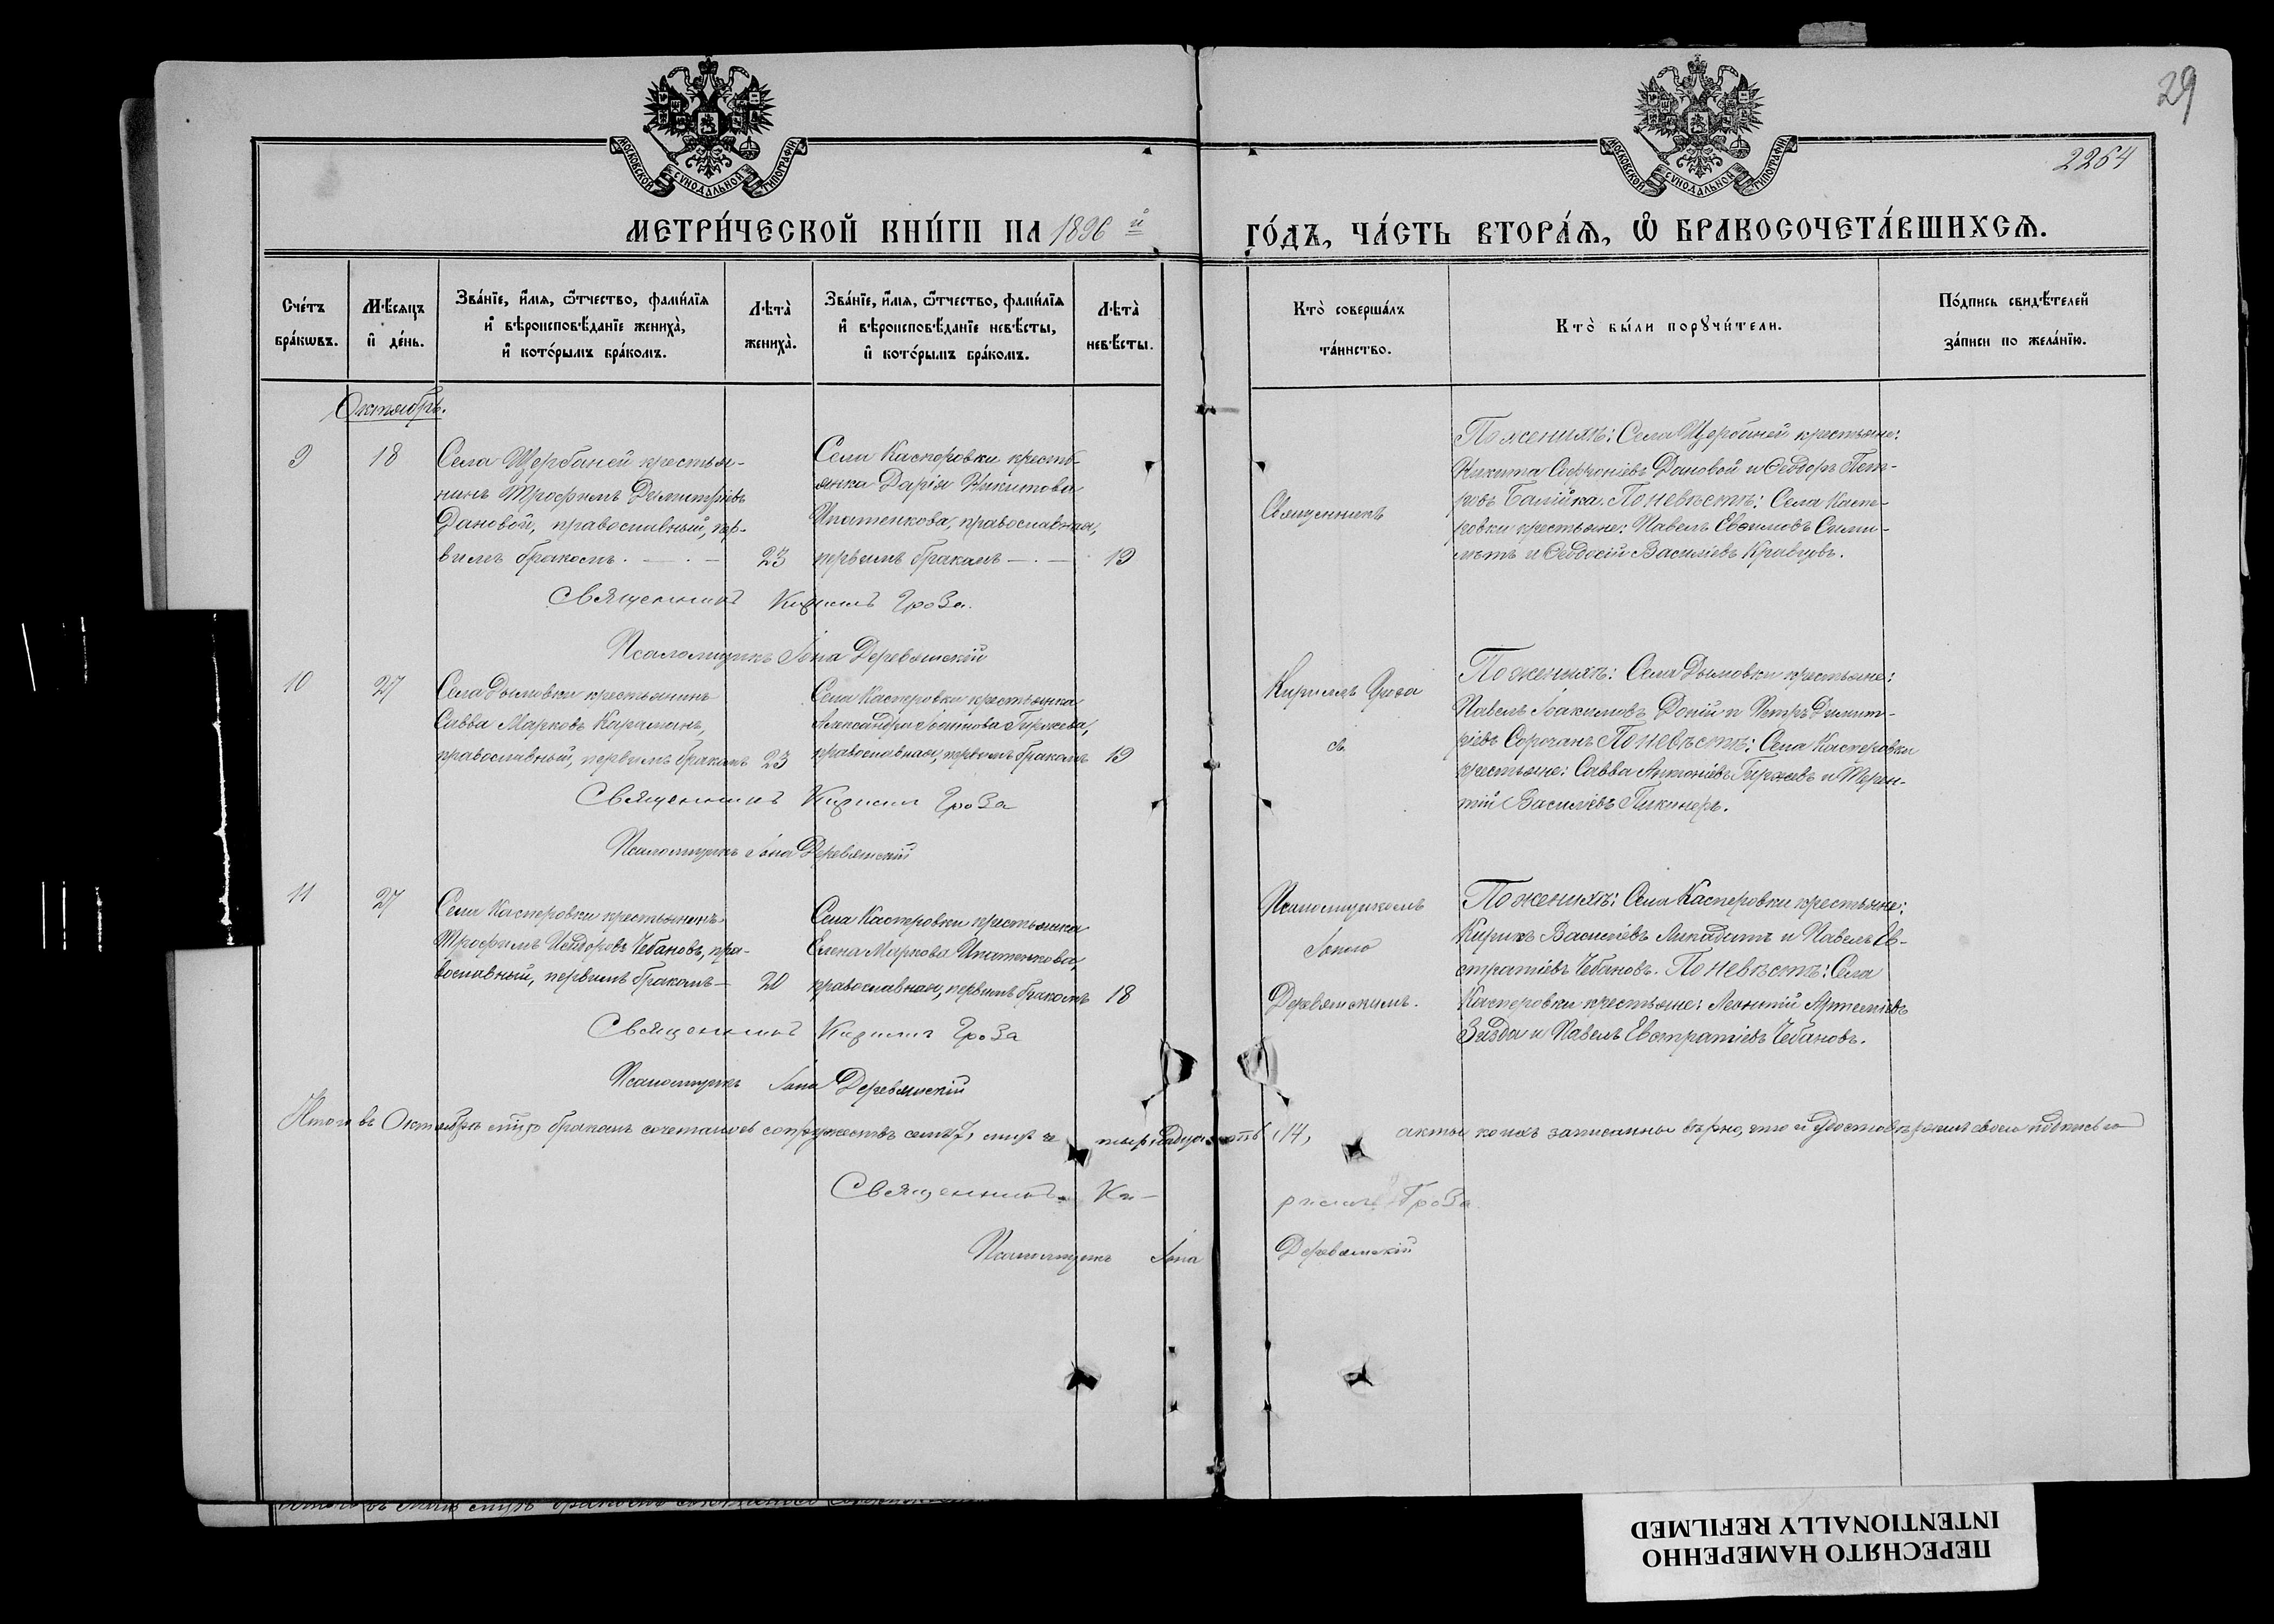 29
МОСКОВСКОЙ СѴНОДАЛЬНОЙ ТИПОГРАФІИ
МОСКОВСКОЙ СѴНОДАЛЬНОЙ ТИПОГРАФІИ
2264
МЕТРИ́ЧЕСКОЙ КНИ́ГИ НА 1896 й
ГО́ДЪ, ЧА́СТЬ ВТОРА́Ѧ, Ѽ БРАКОСОЧЕТА́ВШИХСѦ.
Сче́тъ
бра́кѡвъ.
Мѣ́сѧцъ
и҆ де́нь.
Зва́нїе, и҆́мѧ, ѻ҆́тчество, фами́лїѧ
и҆ вѣроисповѣ́данїе жениха̀,
и҆ кото́рымъ бра́комъ.
Лѣта̀
жениха̀.
Зва́нїе, и҆́мѧ, ѻ҆́тчество, фами́лїѧ
и҆ вѣроисповѣ́данїе невѣ́сты,
и҆ кото́рымъ бра́комъ.
Лѣта̀
невѣ́сты.
Кто̀ соверша́лъ
та́инство.
Кто̀ бы́ли порꙋчи́тели.
По́дпись свидѣ́телей
за́писи по жела́нїю.
Октябрь.
9
18
Села Щербаней крестья-
нинъ Трофимъ Димитріевъ
Дановой, православный, пер-
вымъ бракомъ.
23
Села Касперовки кресть-
янка Дарія Никитова
Ипатенкова, православная,
первымъ бракомъ
19
Священникъ
По женихѣ: Села Щербаней крестьяне:
Никита Софроніевъ Дановой и Ѳеодоръ Пет-
ровъ Балійка. По невѣстѣ: Села Каспе-
ровки крестьяне: Павелъ Евѳимовъ
и Ѳеодосій Василіевъ Кравцовъ.
Священникъ Кириллъ Гроза.
Псаломщикъ Іона Деревянскій
10
27
Села Дымовки крестьянинъ
Савва Марковъ Караманъ,
православный, первымъ бракомъ
23
Села Касперовки крестьянка
Александра Іоаннова Гиржева,
православная, первымъ бракомъ
19
Кирилъ Гроза
съ
По женихѣ: Села Дымовки крестьяне:
Павелъ Іоакимовъ Доній и Петръ Димит-
ріевъ Сорочанъ По невѣстѣ: Села Касперовки
крестьяне: Савва Антоніевъ Гиржевъ и Терен-
тій Василіевъ Пикинеръ.
Священникъ Кирилъ Гроза
Псаломщикъ Іона Деревянскій
11
27
Села Касперовки крестьянинъ
Трофимъ Исидоровъ Чебановъ, пра-
вославный, первымъ бракомъ
20
Села Касперовки крестьянка
Елена Маркова Ипатенкова,
православная, первымъ бракомъ
18
Псаломщикомъ
Іоною
Деревянскимъ.
По женихѣ: Села Касперовки крестьяне:
Кирикъ Василіевъ и Павелъ Ев-
стратіевъ Чебановъ. По невѣстѣ: Села
Касперовки крестьяне: Леонтій Артеміевъ
и Павелъ Евстратіевъ Чебановъ.
Священникъ Кирилъ Гроза
Псаломщикъ Іона Деревянскій
Итого въ Октябрѣ м-цѣ бракомъ сочеталось супружествъ семь 7, лицъ че тырнадцать 14, акты коихъ записанны вѣрно, что и удостовѣряемъ своею подписью
Священникъ Ки- рилъ Гроза.
Псаломщикъ Іона Деревянскій
ПЕРЕСНЯТО НАМЕРЕННО
INTENTIONALLY REFILMED